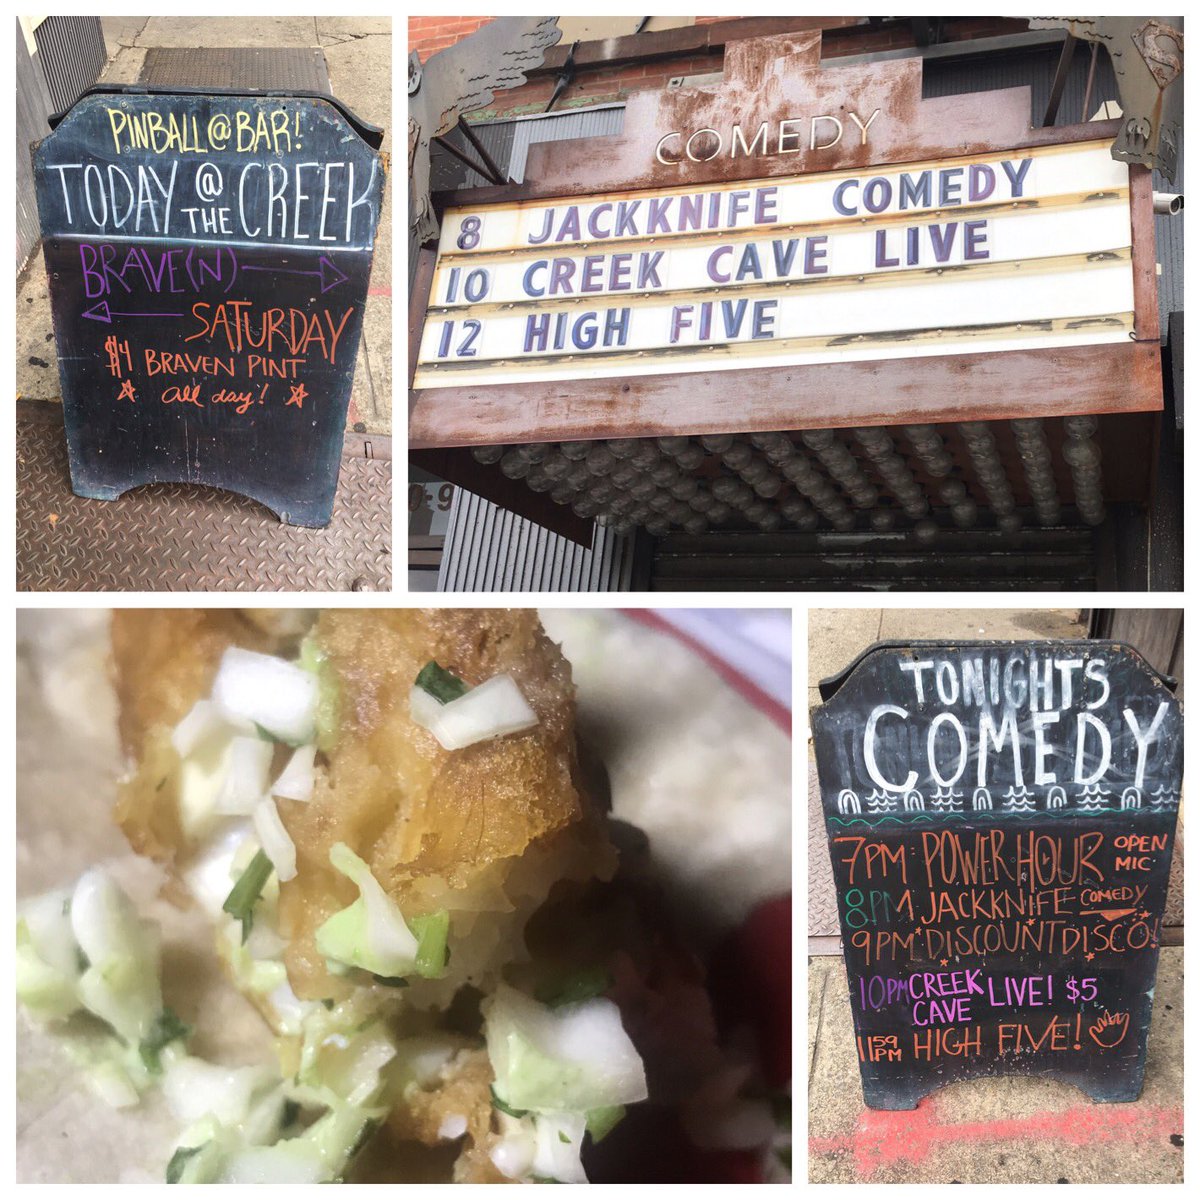 PINBALL @ BAR!
TODAY @ THE CREEK
BRAVE(N)
SATURDAY
$4 BRAVEN PINT
all day!
COMEDY
8 JACKKNIFE COMEDY
10 CREEK CAVE LIVE
12 HIGH FIVE
TONIGHTS
COMEDY
7PM: POWER HOUR OPEN MIC
8PM JACKKNIFE COMEDY
9PM DISCOUNT DISCO!
10PM CREEK CAVE LIVE! $5
11 59 PM HIGH FIVE!